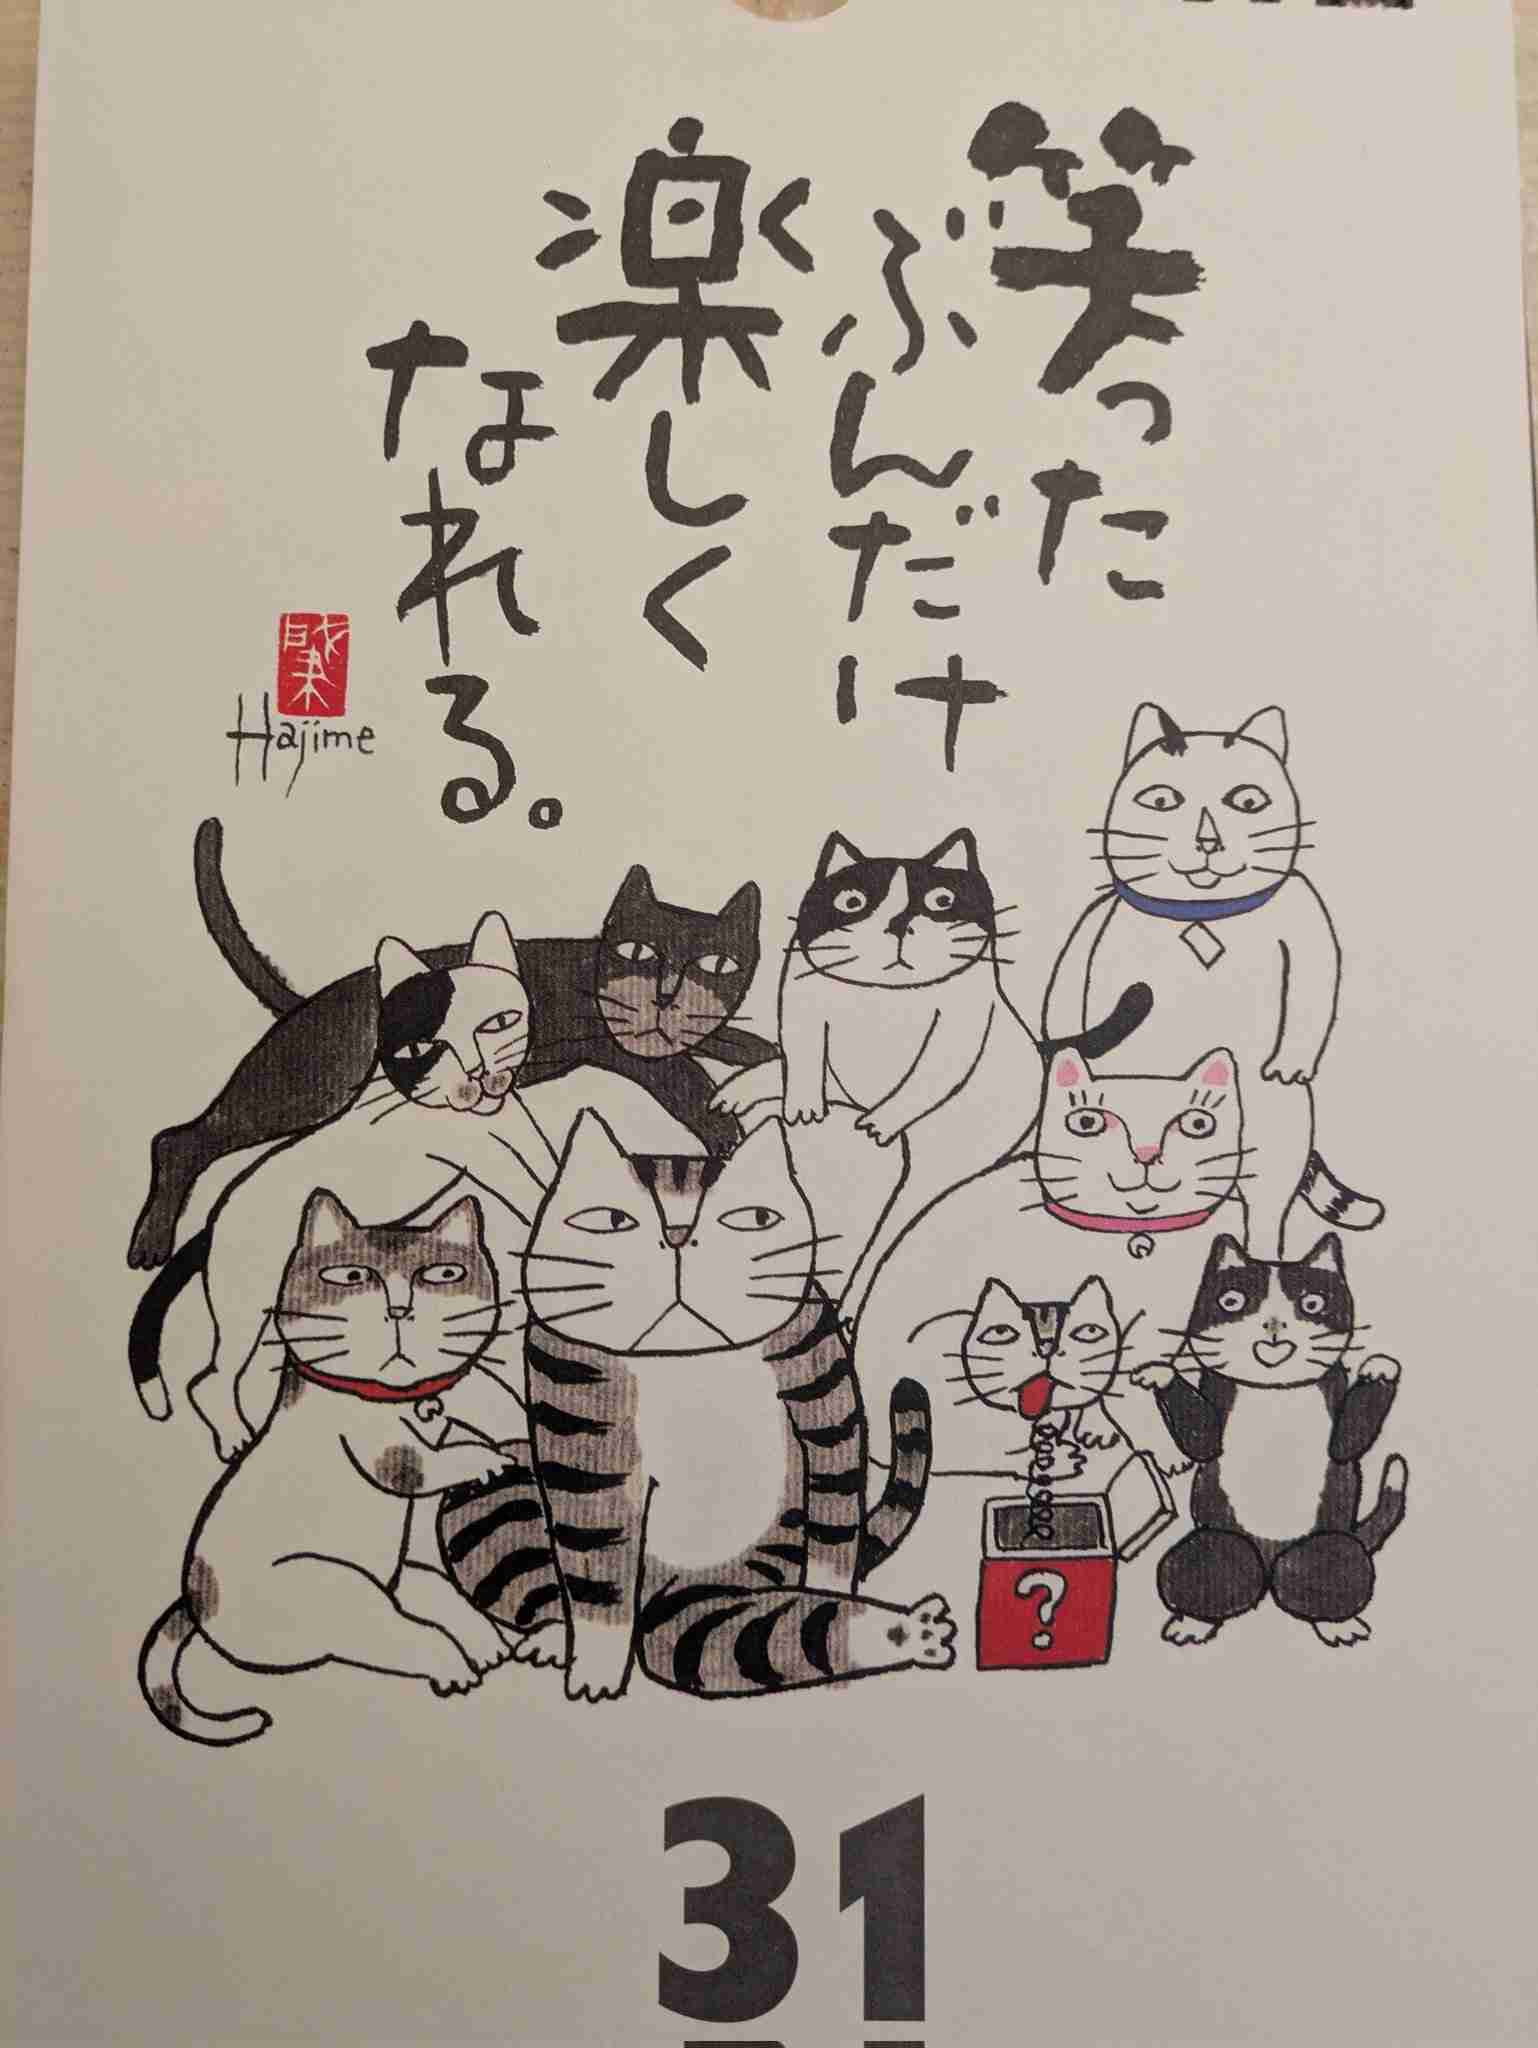 笑った
ぶんだけ
楽しく
なれる。
Hajime
?
31